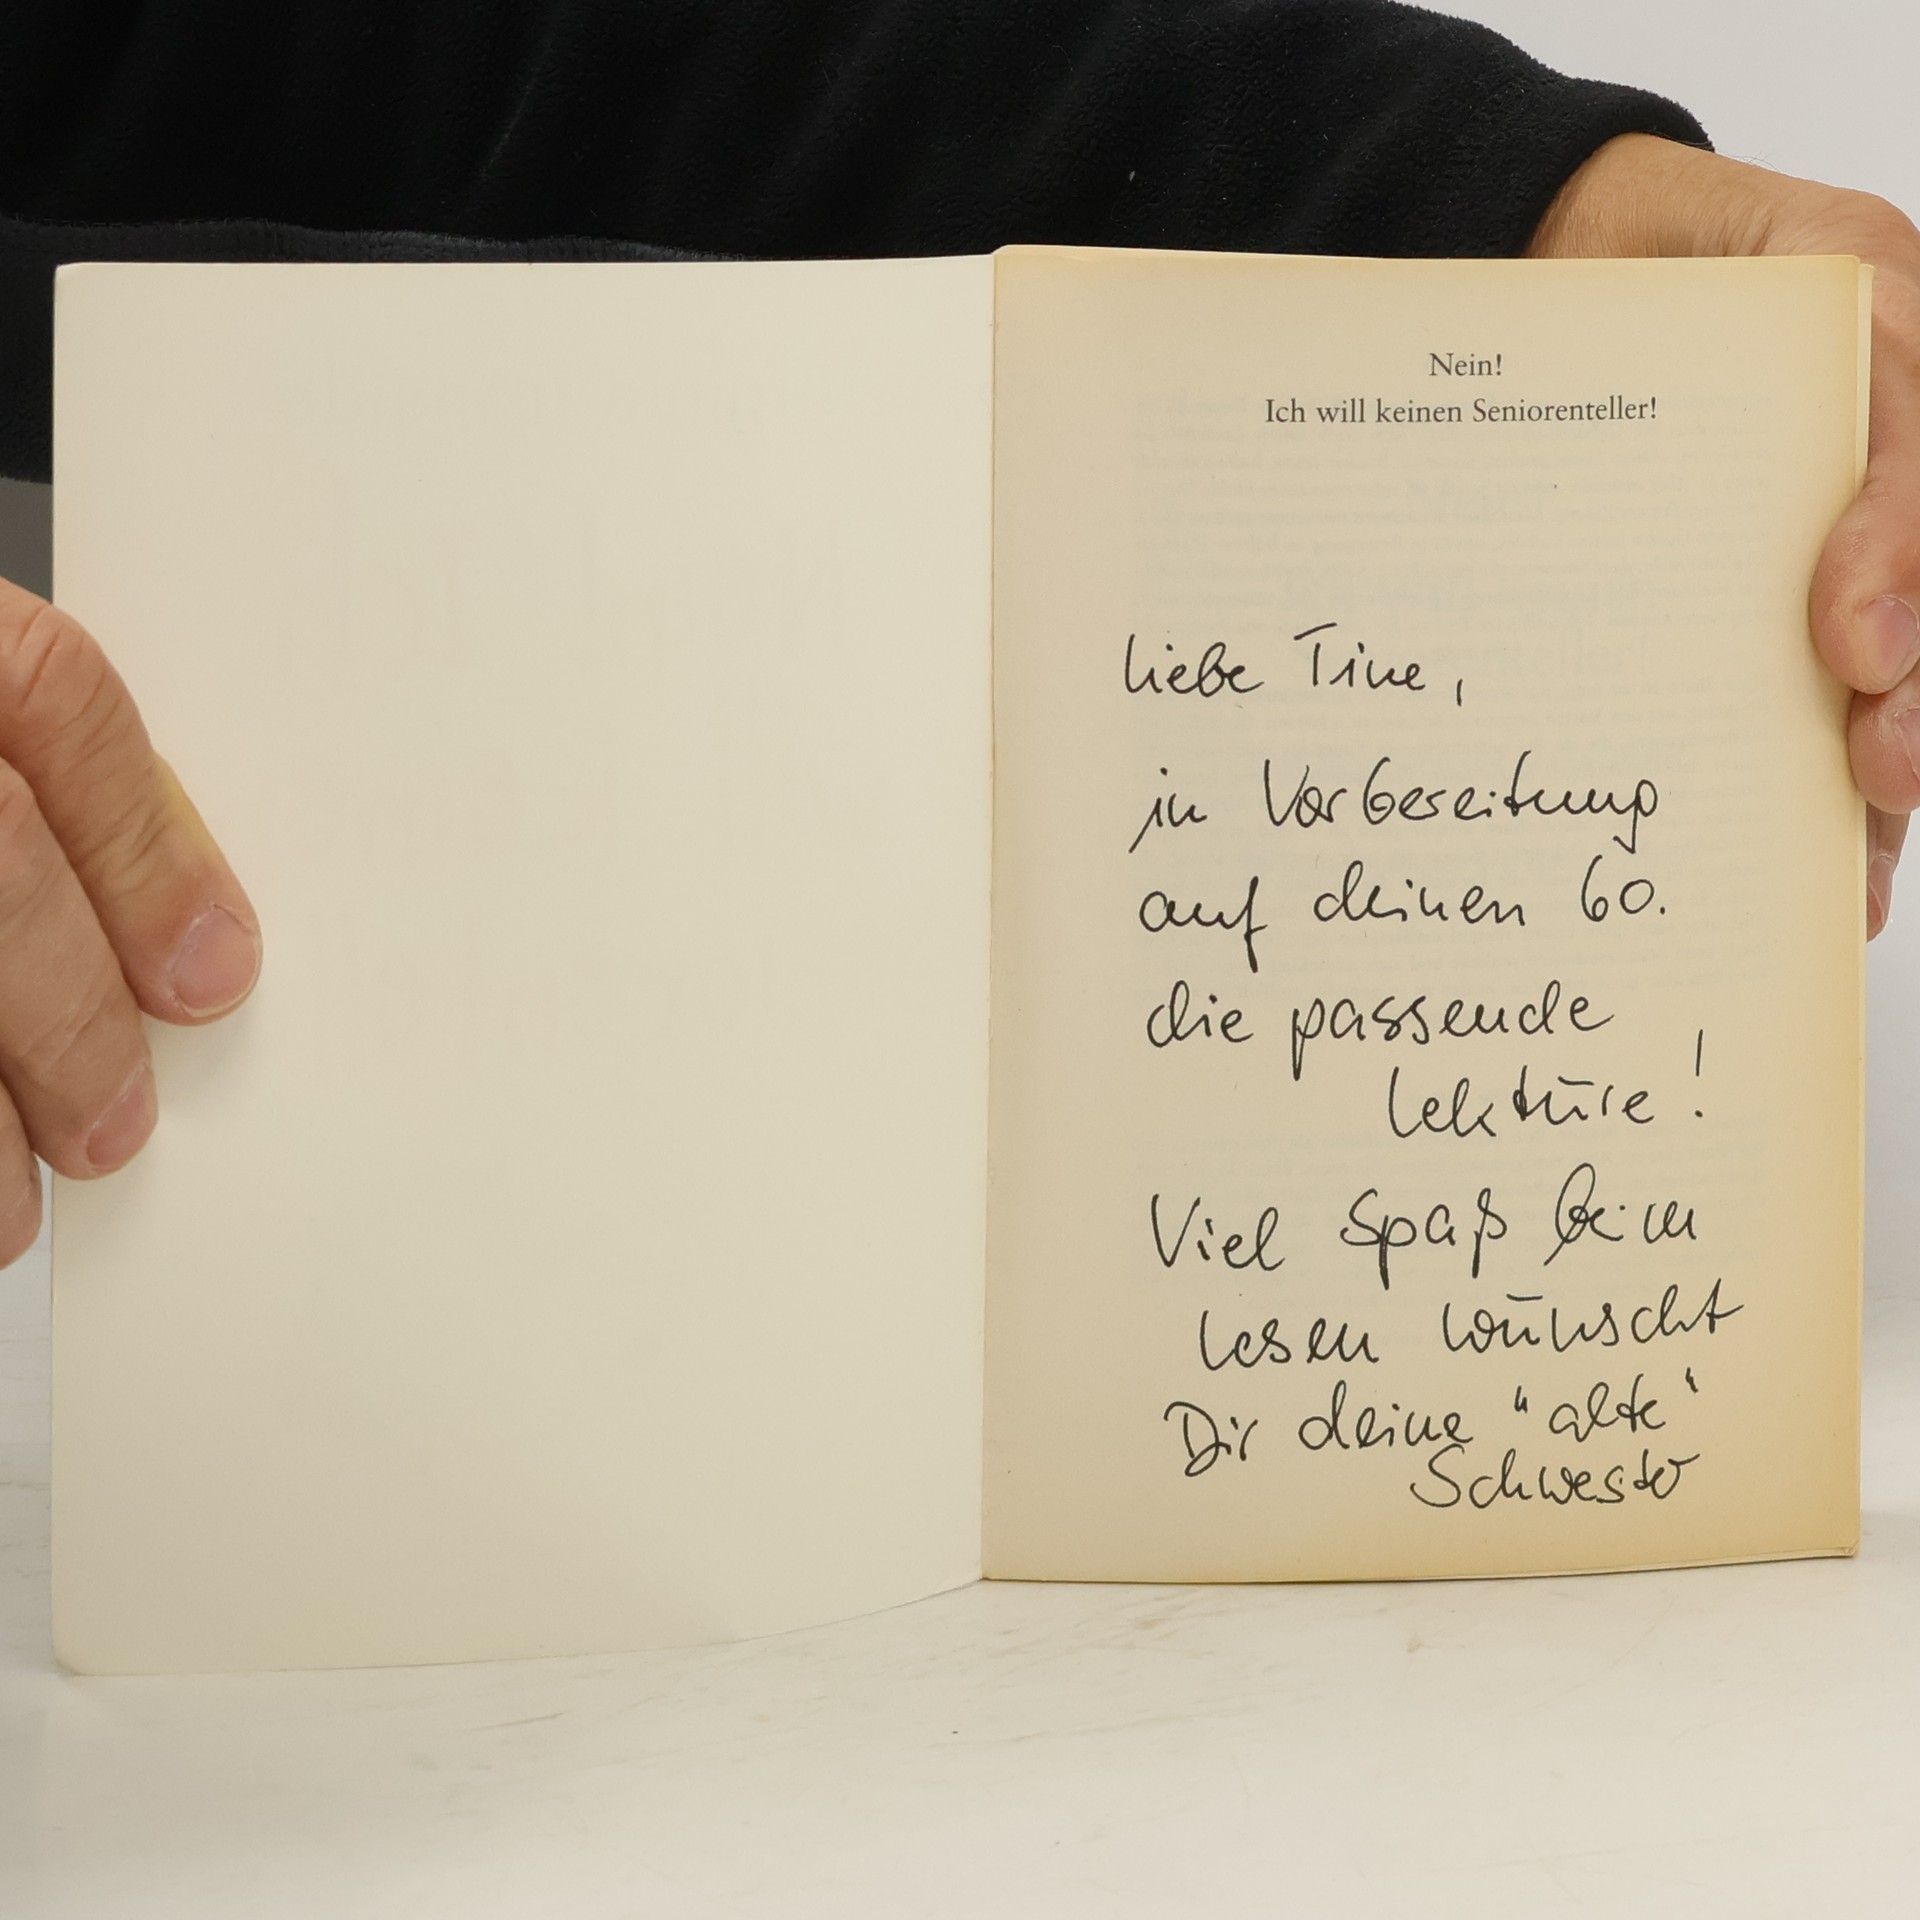 Nein!
Ich will keinen Seniorenteller!
liebe Tine,
in Vorbereitung
auf deinen 60.
die passende
lektüre!
Viel Spaß beim
lesen wünscht
Dir deine "alte"
Schwester